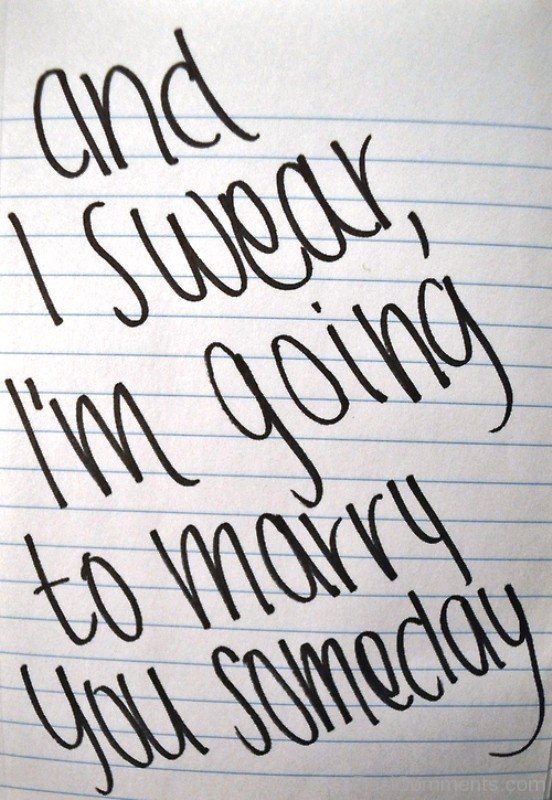 and
I swear,
I'm going
to marry
you someday